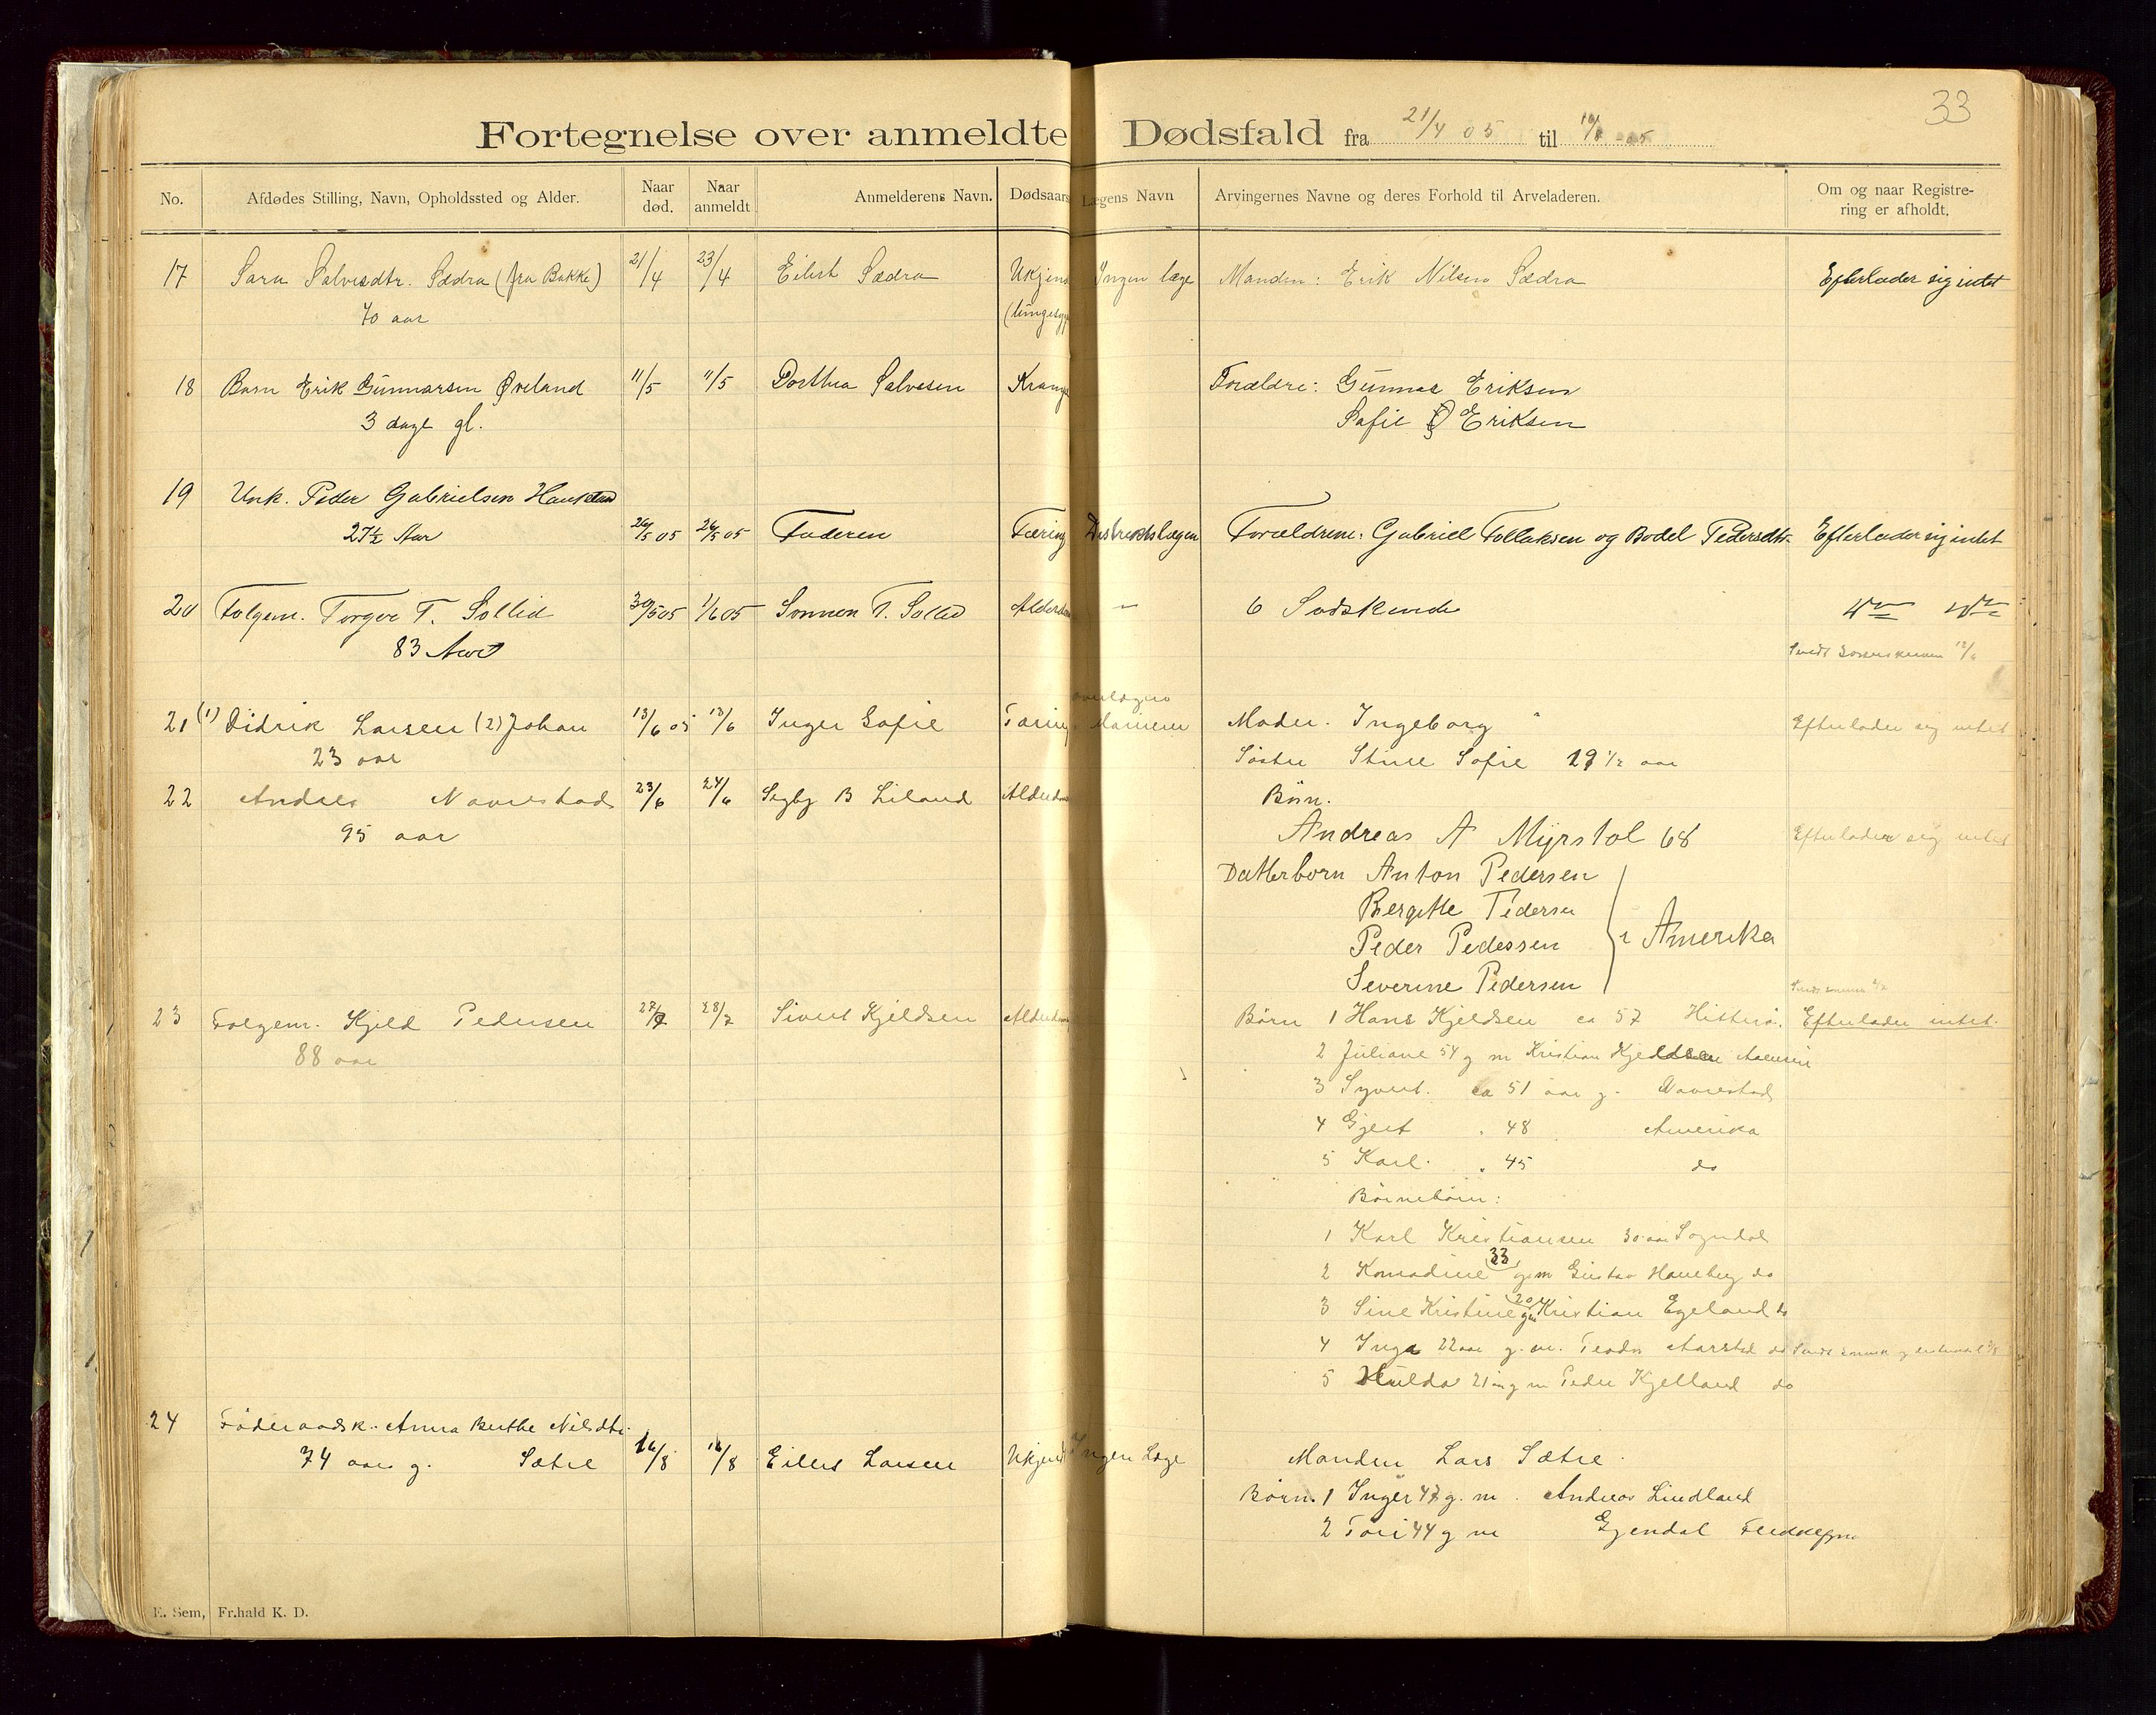 33
Fortegnelse over anmeldte Dødsfald fra 21/4 05 til 16/8 -05
No. Afdødes Stilling, Navn, Opholdssted og Alder. Naar død. Naar anmeldt Anmelderens Navn. Dødsaars Lægens Navn Arvingernes Navne og deres Forhold til Arveladeren. Om og naar Registrering er afholdt.
17 Sara Salvesdtr. Sædra (fra Bakke) 21/4 23/4 Eilert Sædra Ukjend Ingen læge Manden: Erik Nilsen Sædra Efterlader sig intet
70 aar (lungesyg
18 Barn Erik Gunnarsen Øveland 11/5 11/5 Dorthea Salvesen Krampe Forældre: Gunnar Eriksen
3 dage gl. Safie Ø Eriksen
19 Unk. Peder Gabrielsen Haukstad
27½ Aar 26/5 05 26/5 05 Faderen Tæring Distriktslægen Forældrene: Gabriel Tollaksen og Bodel Pedersdtr. Efterlader sig intet
20 Folgem. Torger T. Sollid 30/5 05 1/6 05 Sønnen T. Sollid Alderdom — 6 Sødskende
83 Aar
21 (1) Didrik Larsen (2) Johan 13/6 05 13/6 Inger Sofie Tæring Moder. Ingeborg " Efterlader sig intet
23 aar Søster Stine Sofie 19 1/2 aar
22 Andreas Navrestad 23/6 24/6 Sigbj B Liland Alderdom Børn.
95 aar Andreas A Myrstol 68 Efterlader sig intet
Datterbørn Anton Pedersen
Bergitte Pedersen
Peder Pedersen i Amerika
Severine Pedersen
23 Folgem. Kjeld Pedersen 27/7 28/7 Sivert Kjeldsen Alderdom Børn 1 Hans Kjeldsen ca 57 Hitterø. Efterlader intet.
88 aar 2 Juliane 54 g m Kristian Kjeldsen
3 Syvert. ca 51 aar g. Navrestad
4 Gjert " 48 Amerika
5 Karl. " 45 do
Børnebørn:
1 Karl Kristiansen 30 aar Sogndal
2 Konradine 33 gm Gustav Haneberg do
3 Sine Kristine 20 gm Kristian Egeland do
4 Inga 22 aar g. m. Teodor Aarstad do
5 Hulda 21 aar g m Peder Kjelland do
24 Føderaadsk. Anna Berthe Nilsdtr.
74 aar g. Sætre 16/8 16/8 Eilert Larsen Ukjendt Ingen Læge Manden Lars Sætre.
Børn. 1 Inger 47 g. m. Andreas Lindland
2 Tori 44 g m Egendal
E. Sem, Fr.hald K. D.